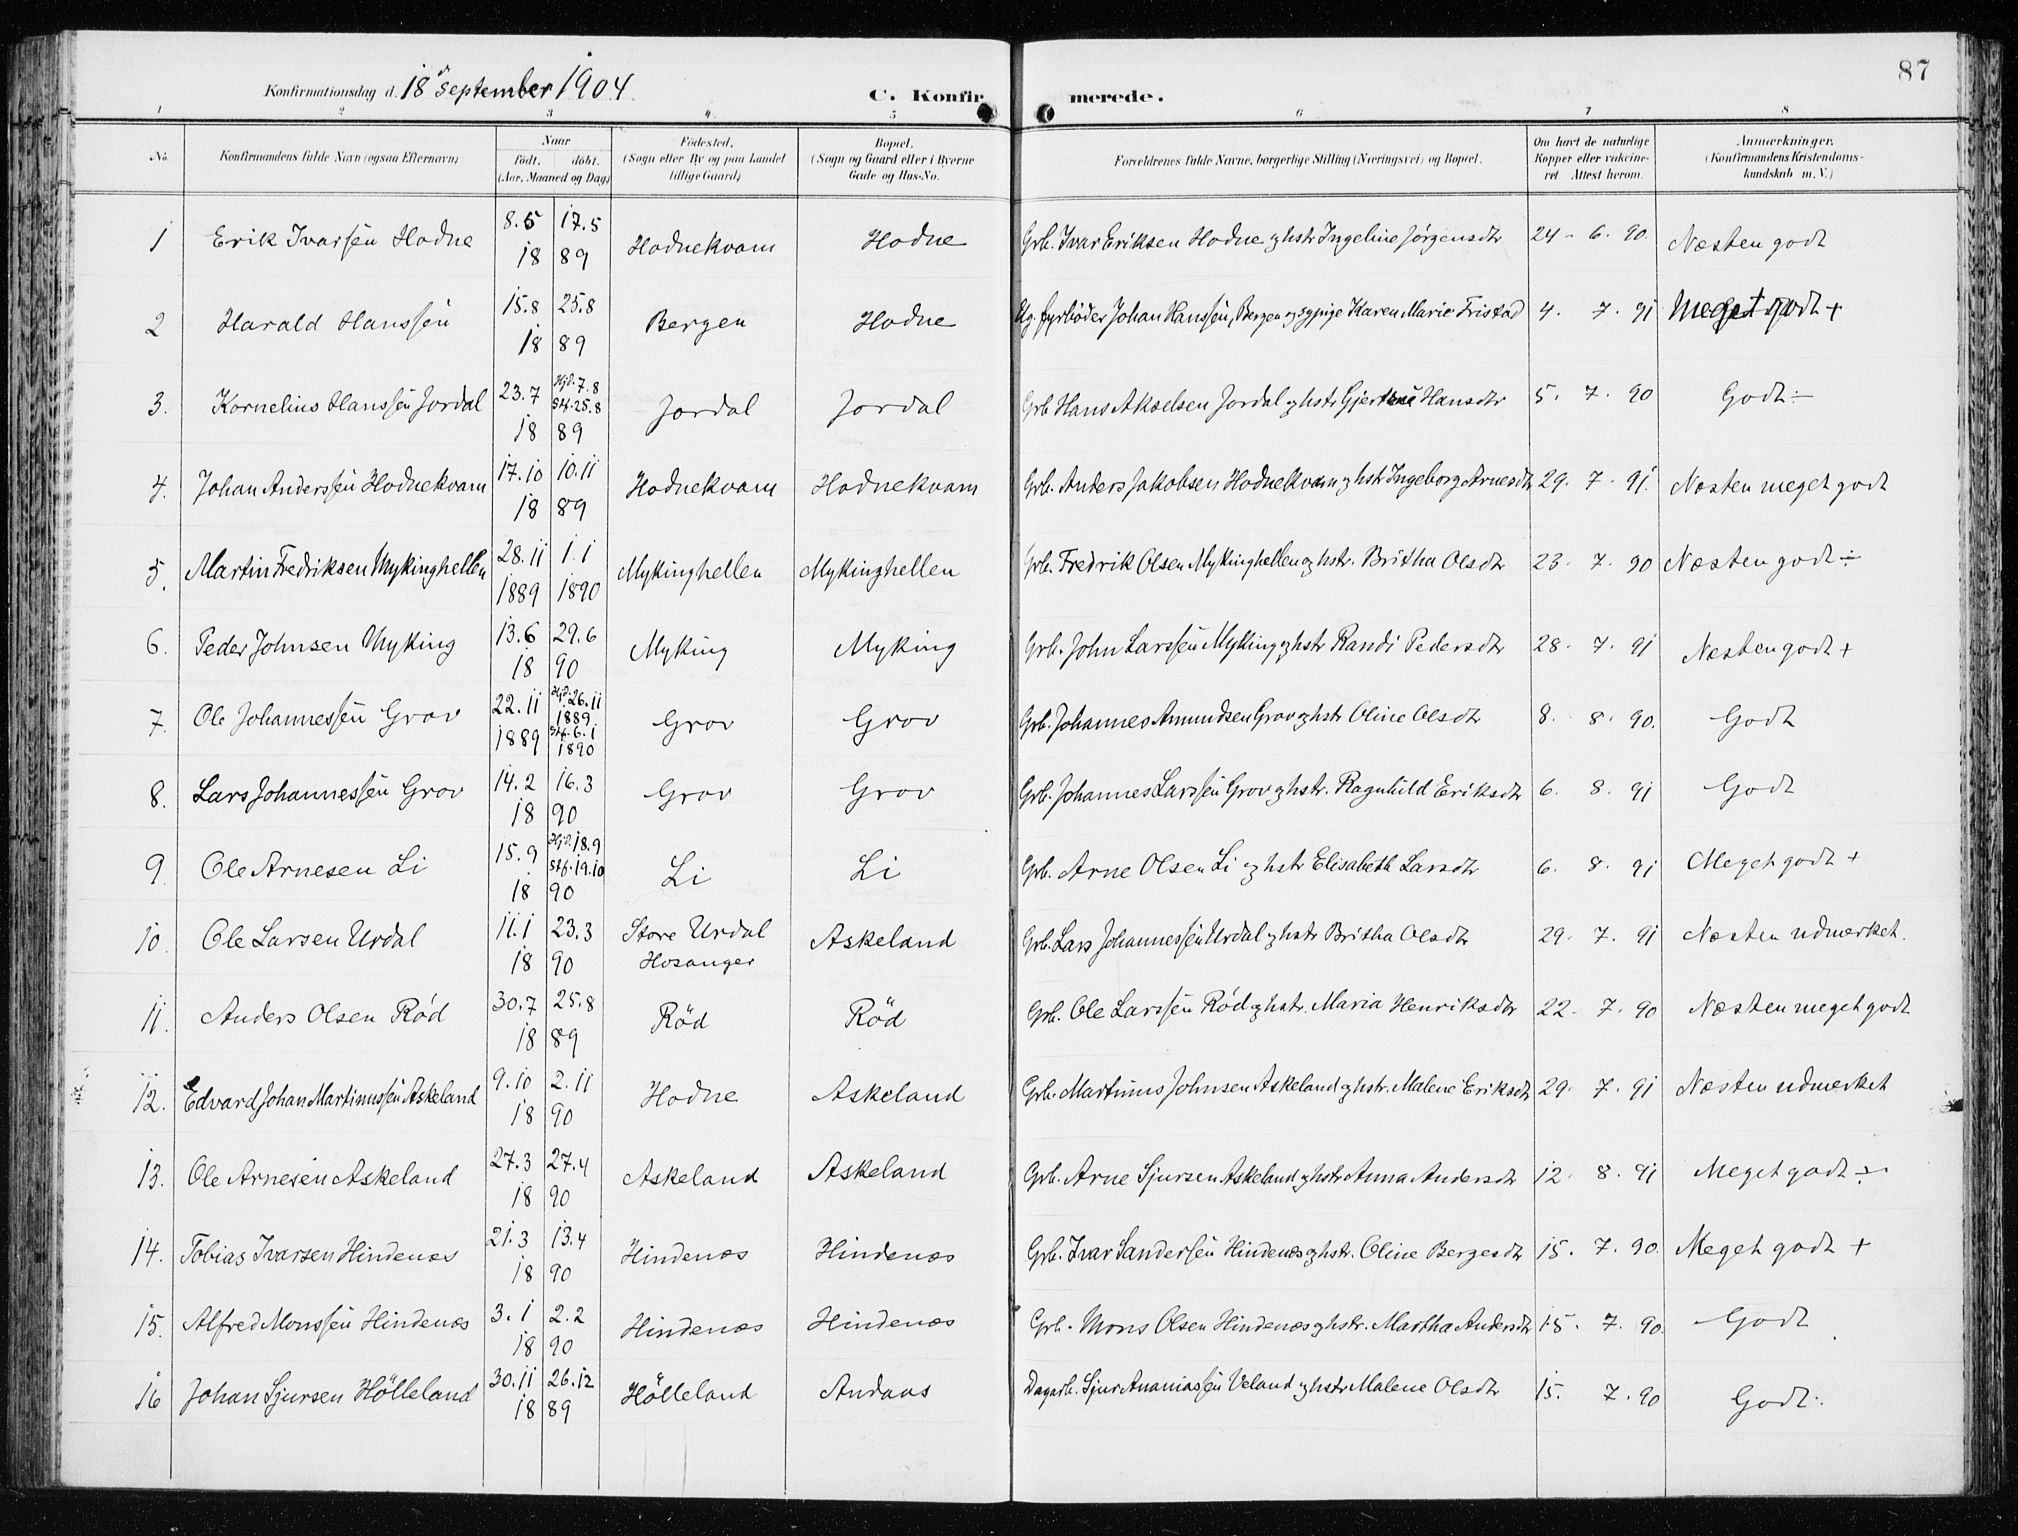 87
Konfirmationsdag d. 18de September 1904
C. Konfirmerede.
1 2 3 4 5 6 7 8
No. Konfirmandens fulde Navn (ogsaa Efternavn) Naar født. døbt. (Aar, Maaned og Dag) Fødested. (Sogn eller By og paa Landet tillige Gaard) Bopæl. (Sogn og Gaard eller i Byerne Gade og Hus-No. Forældrenes fulde Navne, borgerlige Stilling (Næringsvei) og Bopæl. Om havt de naturlige Kopper eller vakcineret Attest herom. Anmærkninger. (Konfirmandens Kristendomskundskab m. V.)
1 Erik Ivarsen Hodne 8.5 17.5 18 89 Hodnekvam Hodne Grb. Ivar Eriksen Hodne og hstr Ingeline Jörgensdtr 24 - 6. 90. Næsten godt
2 Harald Hanssen 15.8 25.8 18 89 Bergen Hodne Ug. fyrböder Johan Hanssen, Bergen og sypige Karen Marie Fristad 4. 7. 91 Meget godt +
3. Kornelius Hanssen Jordal 23.7 Hjd. 7.8 Stf. 25.8 18 89 Jordal Jordal Grb Hans Akselsen Jordal og hstr Gjertine Hansdtr 5. 7. 90 Godt ÷
4. Johan Anderssen Hodnekvam 17.10 10.11 18 89 Hodnekvam Hodnekvam Grb. Anders Jakobsen Hodnekvam og hstr Ingeborg Arnesdtr 29. 7. 91. Næsten meget godt
5. Martin Fredriksen Mykinghellen 28.11 1889 1.1 1890 Mykinghellen Mykinghellen Grb. Fredrik Olsen Mykinghellen og hstr. Britha Olsdtr 23. 7. 90 Næsten godt ÷
6. Peder Johnsen Myking 13.6 29.6 18 90 Myking Myking Grb. John Larssen Myking og hstr Randi Pedersdtr 28. 7. 91 Næsten godt +
7. Ole Johannessen Grov 22.11 1889 Hjd. 26.11 1889 Stf. 6.1 1890 Grov Grov Grb. Johannes Amundsen Grov og hstr Oline Olsdtr 8. 8. 90. Godt
8. Lars Johannessen Grov 14.2 16.3 18 90 Grov Grov Grb. Johannes Larssen Grov og hstr. Ragnhild Eriksdtr 6. 8. 91 Godt
9. Ole Arnesen Li 15.9 Hjd. 18.9 Stf. 19.10 18 90 Li Li Grb. Arne Olsen Li og hstr Elisabeth Larsdtr 6. 8. 91 Meget godt +
10. Ole Larsen Urdal 11.1 23.3 18 90 Store Urdal Hosanger Askeland Grb. Lars Johannessen Urdal og hstr Britha Olsdtr 29. 7. 91 Næsten udmerket.
11. Anders Olsen Röd 30.7 25.8 18 89 Röd Röd Grb. Ole Larssen Röd og hstr. Maria Henriksdtr 22. 7. 90 Næsten meget godt
12. Edvard Johan Martinussen Askeland 9.10 2.11 18 90 Hodne Askeland Grb. Martinus Johnsen Askeland og hstr. Malene Eriksdtr 29. 7. 91 Næsten udmerket
13. Ole Arnesen Askeland 27.3 27.4 18 90 Askeland Askeland Grb. Arne Sjursen Askeland og hstr Anna Andersdtr 12. 8. 91 Meget godt ÷
14. Tobias Ivarsen Hindenæs 21.3 13.4 18 90 Hindenæs Hindenæs Grb. Ivar Sandersen Hindenæs og hstr. Oline Bergesdtr 15. 7. 90. Meget godt +
15. Alfred Monssen Hindenæs 3.1 2.2 18 90 Hindenæs Hindenæs Grb. Mons Olsen Hindenæs og hstr. Martha Andersdtr 15. 7. 90. Godt
16 Johan Sjursen Hölleland 30.11 26.12 18 89 Hölleland Andaas Dagarb. Sjur Ananiassen Veland og hstr Malene Olsdtr 15. 7. 90 Godt.